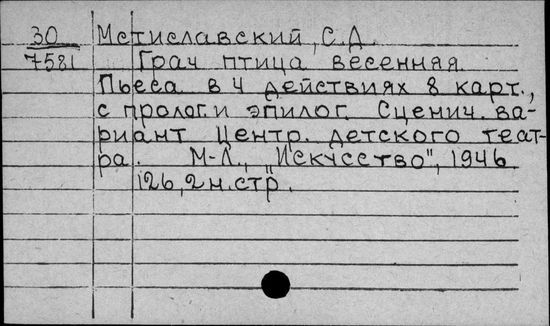 30 Мстиславский, С.Д.
7581 Грач птица весенняя.
Пьеса в 4 действиях 8 карт.,
с пролог. и эпилог. Сценич. ва-
риант Центр. детского теат-
ра. М-Л., "Искусство", 1946
126, 2 н. стр.